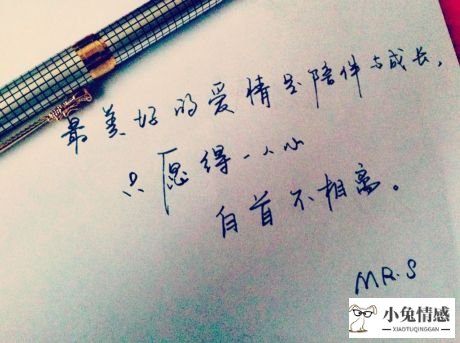 最美好的爱情是陪伴与成长，
只愿得一人心
白首不相离。
MR.S
小兔情感
XIAOTUQINGGAN